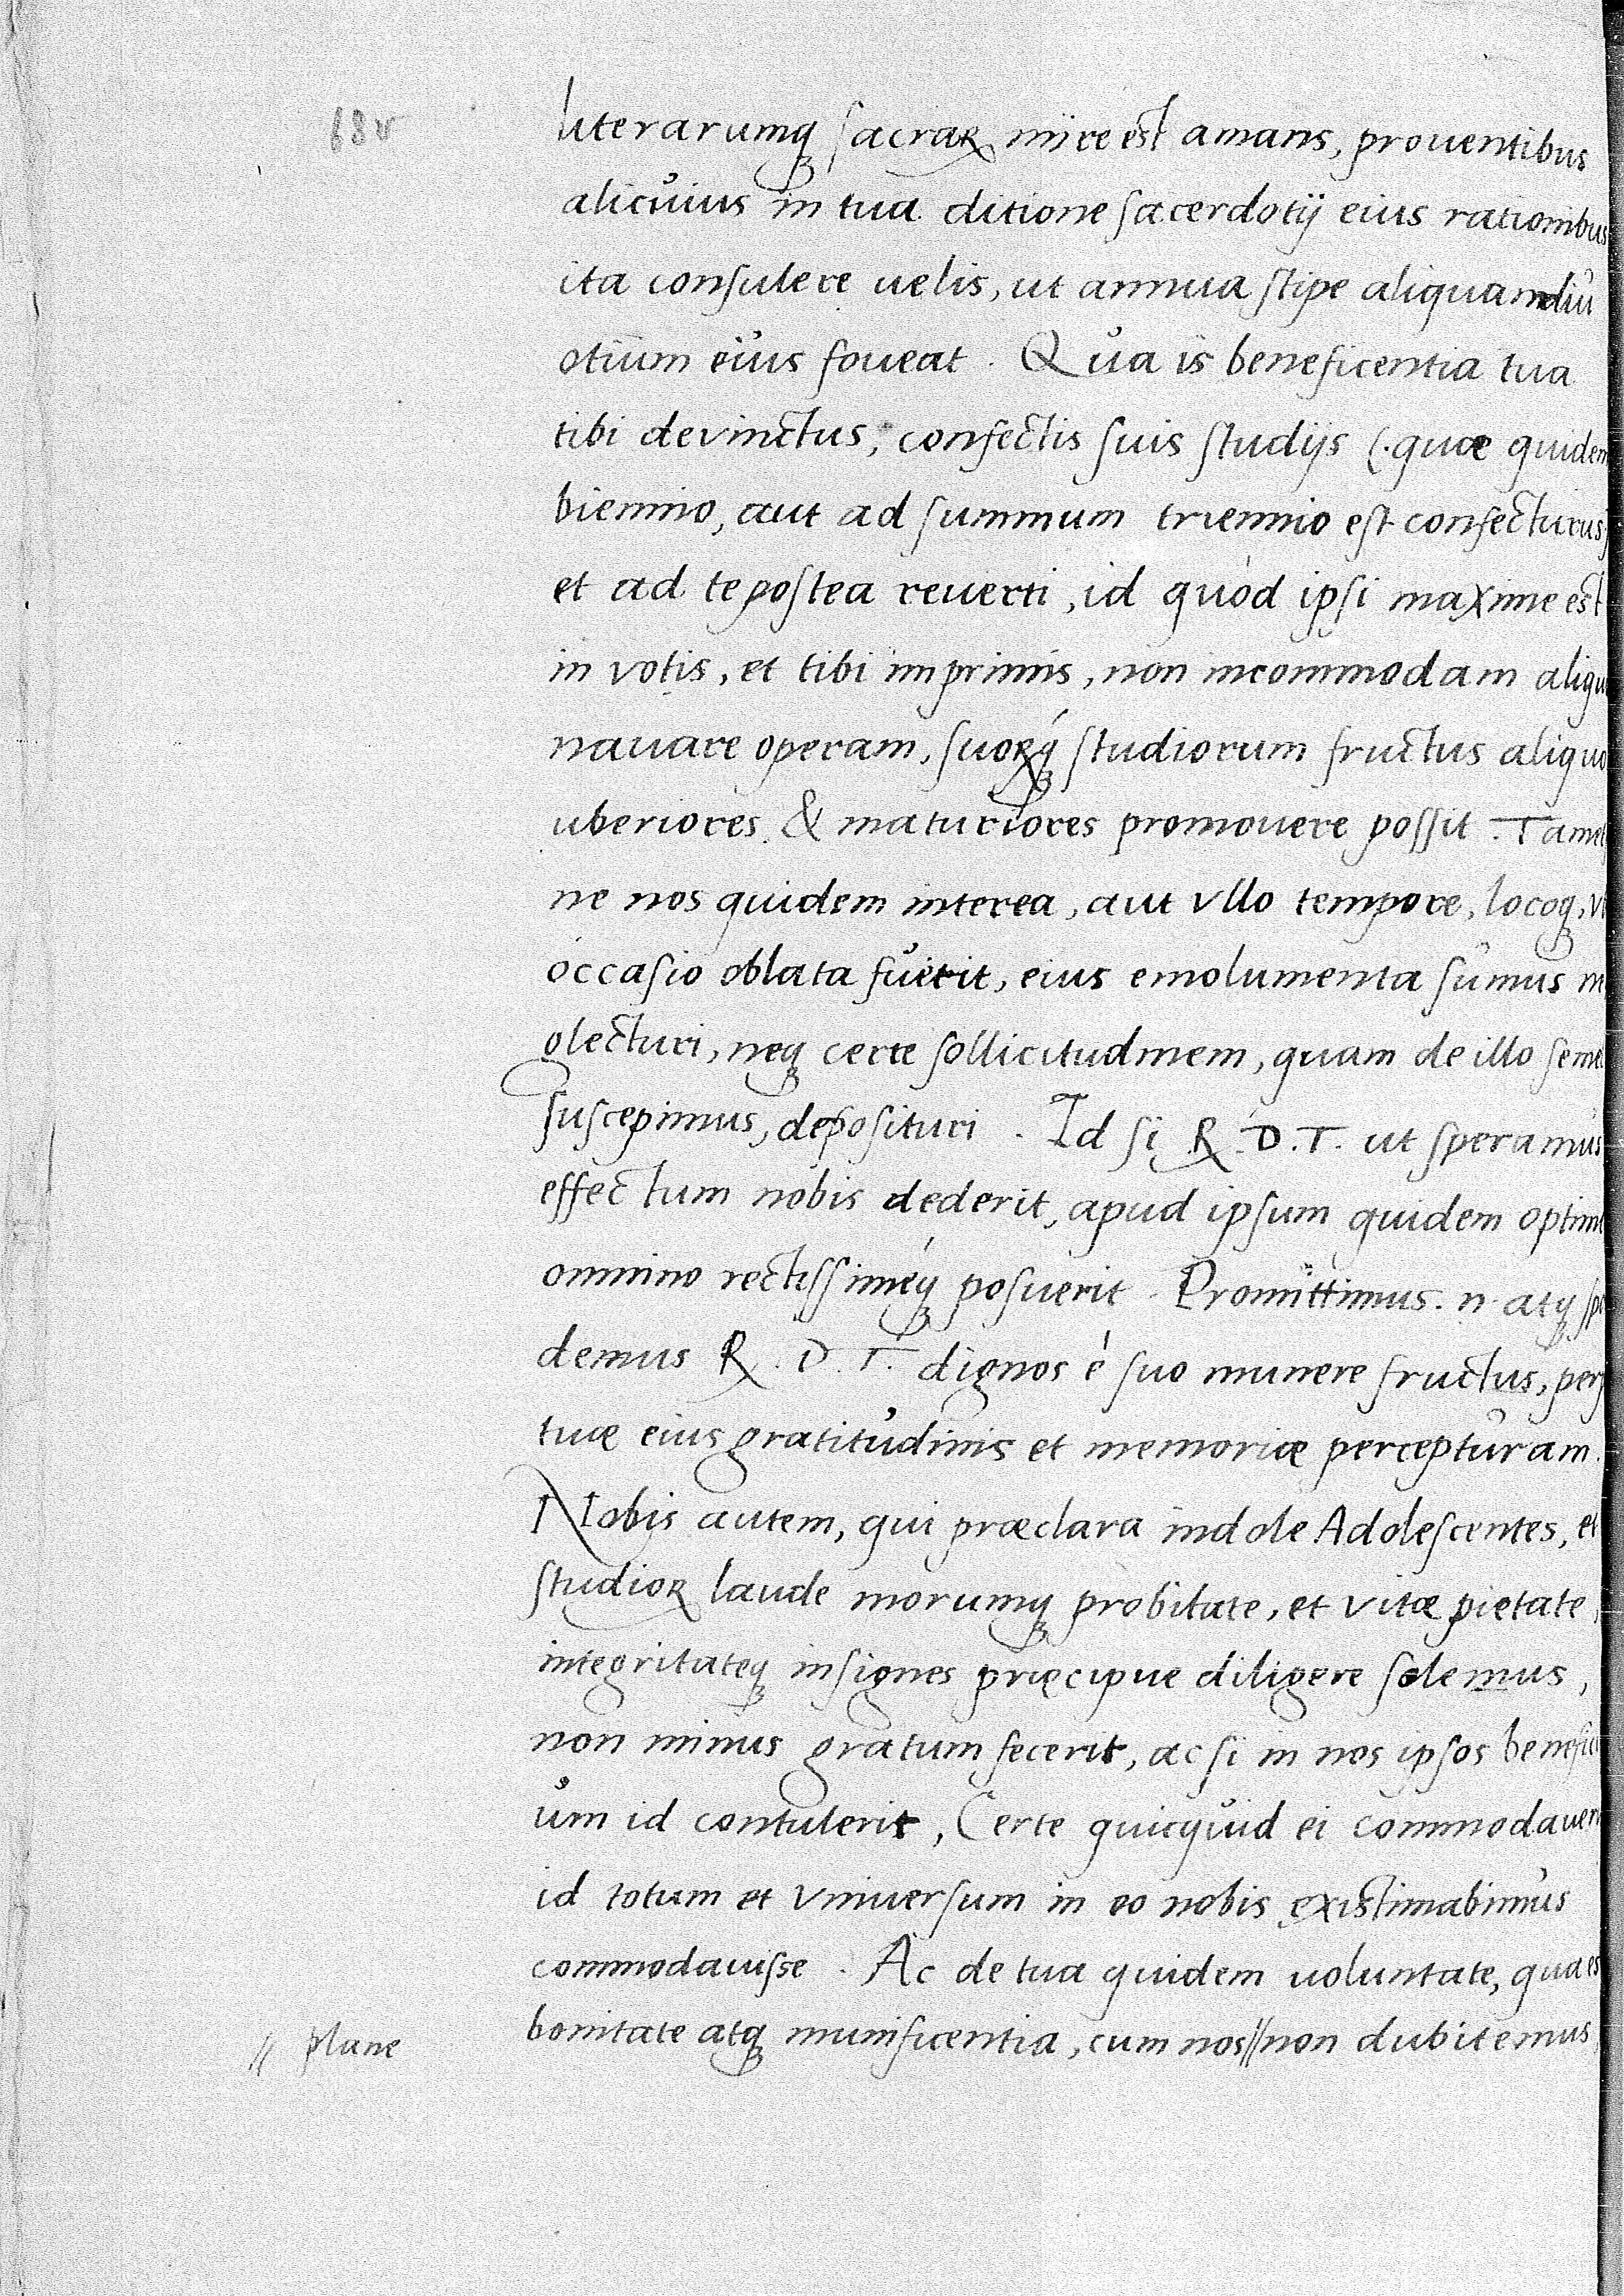 68v
literarumq́ꝫ sacraꝝ mire est amans, prouentibus
alicuius in tua ditione sacerdotij eius rationibus
ita consulere uelis, ut annua stipe aliquamdiu
otium eius foueat. Qua is beneficentia tua
tibi devinctus, confectis suis studijs (quæ quidem
biennio, aut ad summum triennio est confecturus)
et ad te postea reuerti, id quod ipsi maxime est
in votis, et tibi imprimis, non incommodam aliqu
nauare operam, suoꝝq́ꝫ studiorum fructus aliquo
uberiores & maturiores promouere possit. Tamet
ne nos quidem interea, aut vllo tempore, locoqꝫ, v
occasio oblata fuerit, eius emolumenta sumus n
glecturi, neqꝫ certe sollicitudinem, quam de illo seme
suscepimus, deposituri. Id si R. D. T. ut speramus
effectum nobis dederit, apud ipsum quidem optim
omnino rectissiméqꝫ posuerit. Promittimus .n. atqꝫ sp
demus R. D. T. dignos è suo munere fructus, perp
tuæ eius gratitudinis et memoriæ percepturam.
Nobis autem, qui præclara indole Adolescentes, et
studioꝝ laude morumqꝫ probitate, et vitæ pietate,
integritateqꝫ insignes præcipue diligere solemus,
non minus gratum fecerit, ac si in nos ipsos benefici
um id contulerit, Certe quicquid ei commodaueri
id totum et vniuersum in eo nobis existimabimus
commodauisse. Ac de tua quidem uoluntate, qua es
bonitate atqꝫ munificentia, cum nos // non dubitemus,
// plane